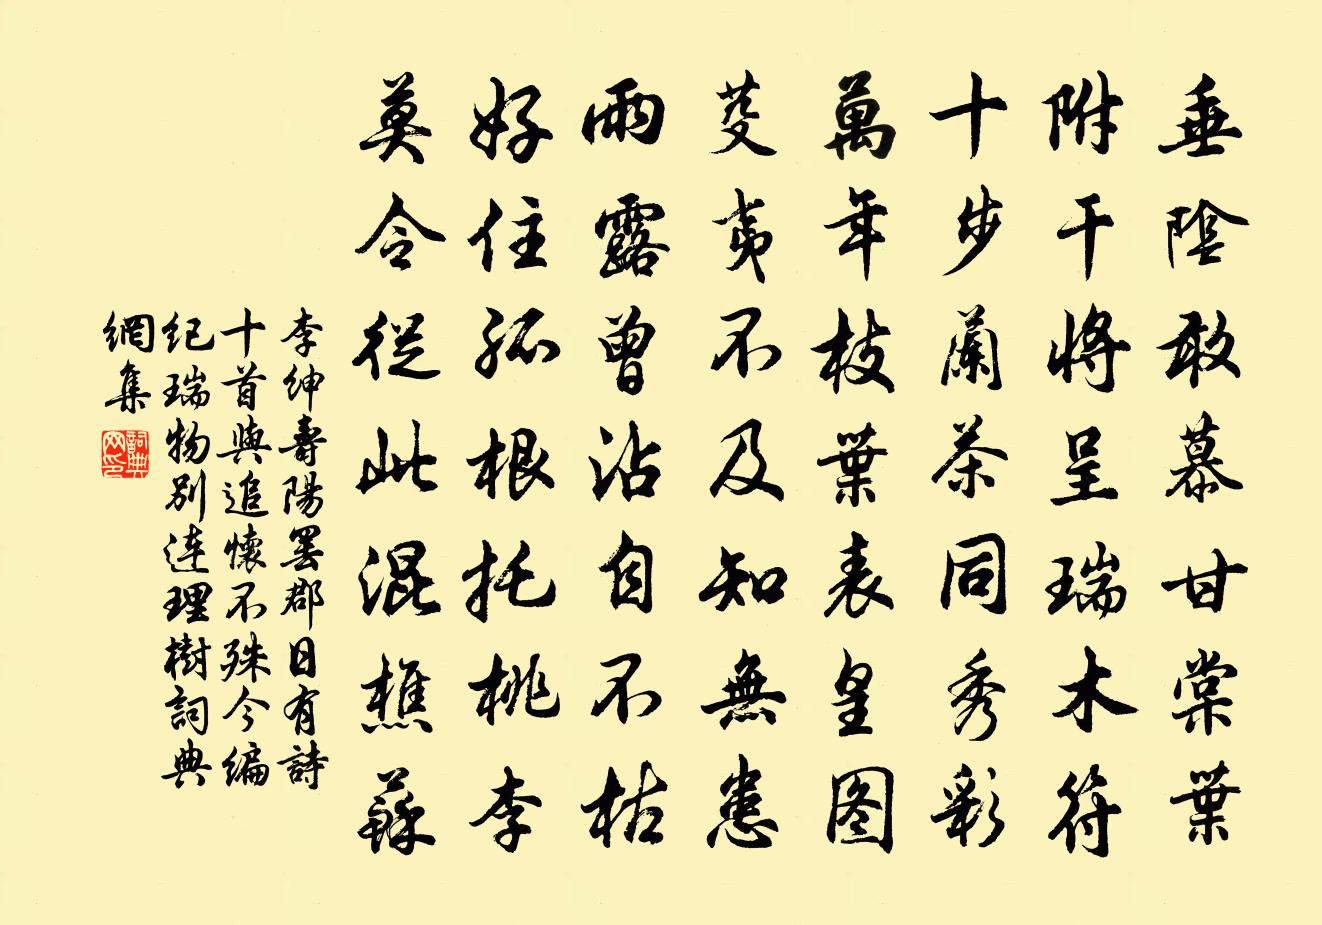 垂陰敢慕甘棠葉
附干將呈瑞木符
十步蘭茶同秀彩
萬年枝葉表皇图
芟夷不及知無患
雨露曾沾自不枯
好住孤根托桃李
莫令從此混樵蘇
李紳壽陽罢郡日有詩
十首與追懷不殊今编
纪瑞物别连理樹詞典
網集
詞典网印